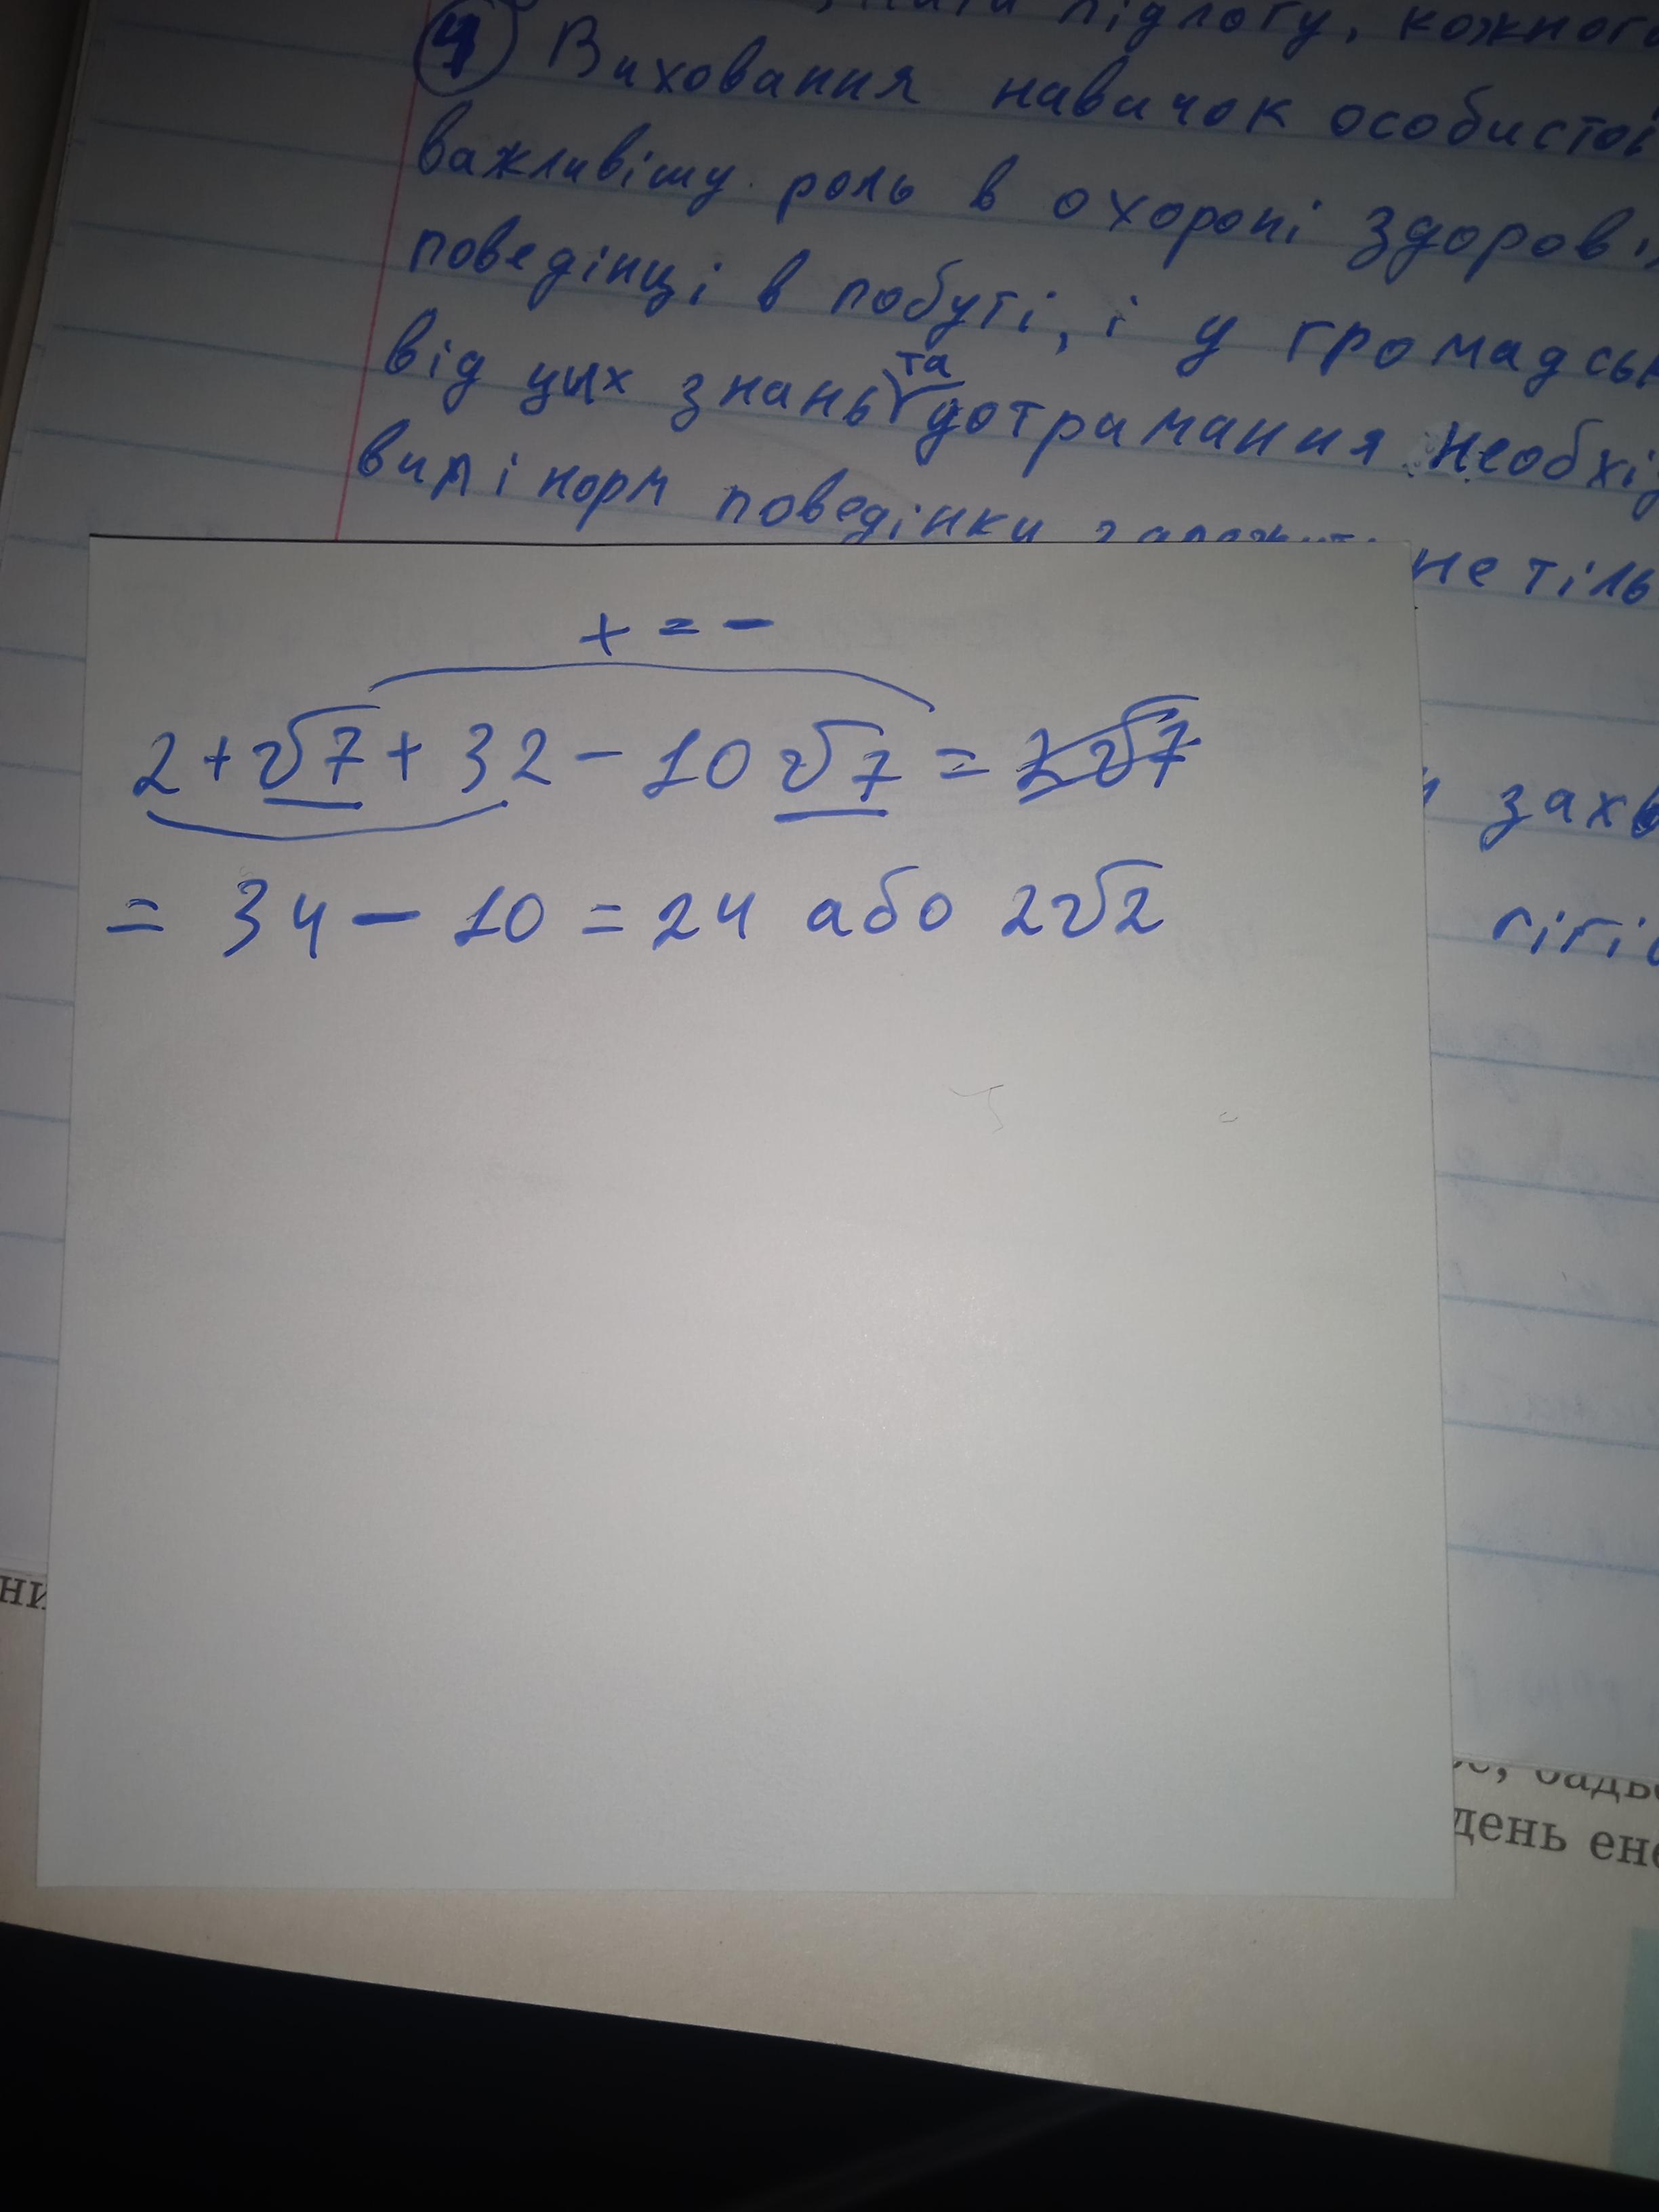 підлогу, кожного
4 Виховання навичок особистої
важливішу роль в охороні здоров'
поведінці в побуті, і у громадсь
та
від цих знань дотримання необхі
вим і норм поведінки не тіль
+ = -
2 + √7 + 32 - 10 √7 = 2√7
= 34 - 10 = 24 або 2√2
захв
гігіє
ни
день ене